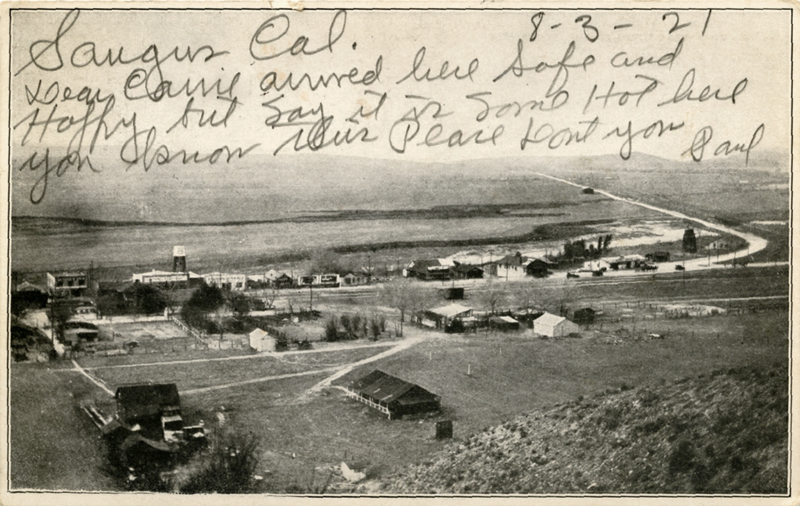 Saugus Cal. 8-3-21
Dear Carrie arrived here Safe and
Happy but Say it is Some Hot here
you Know this Place Dont you Paul